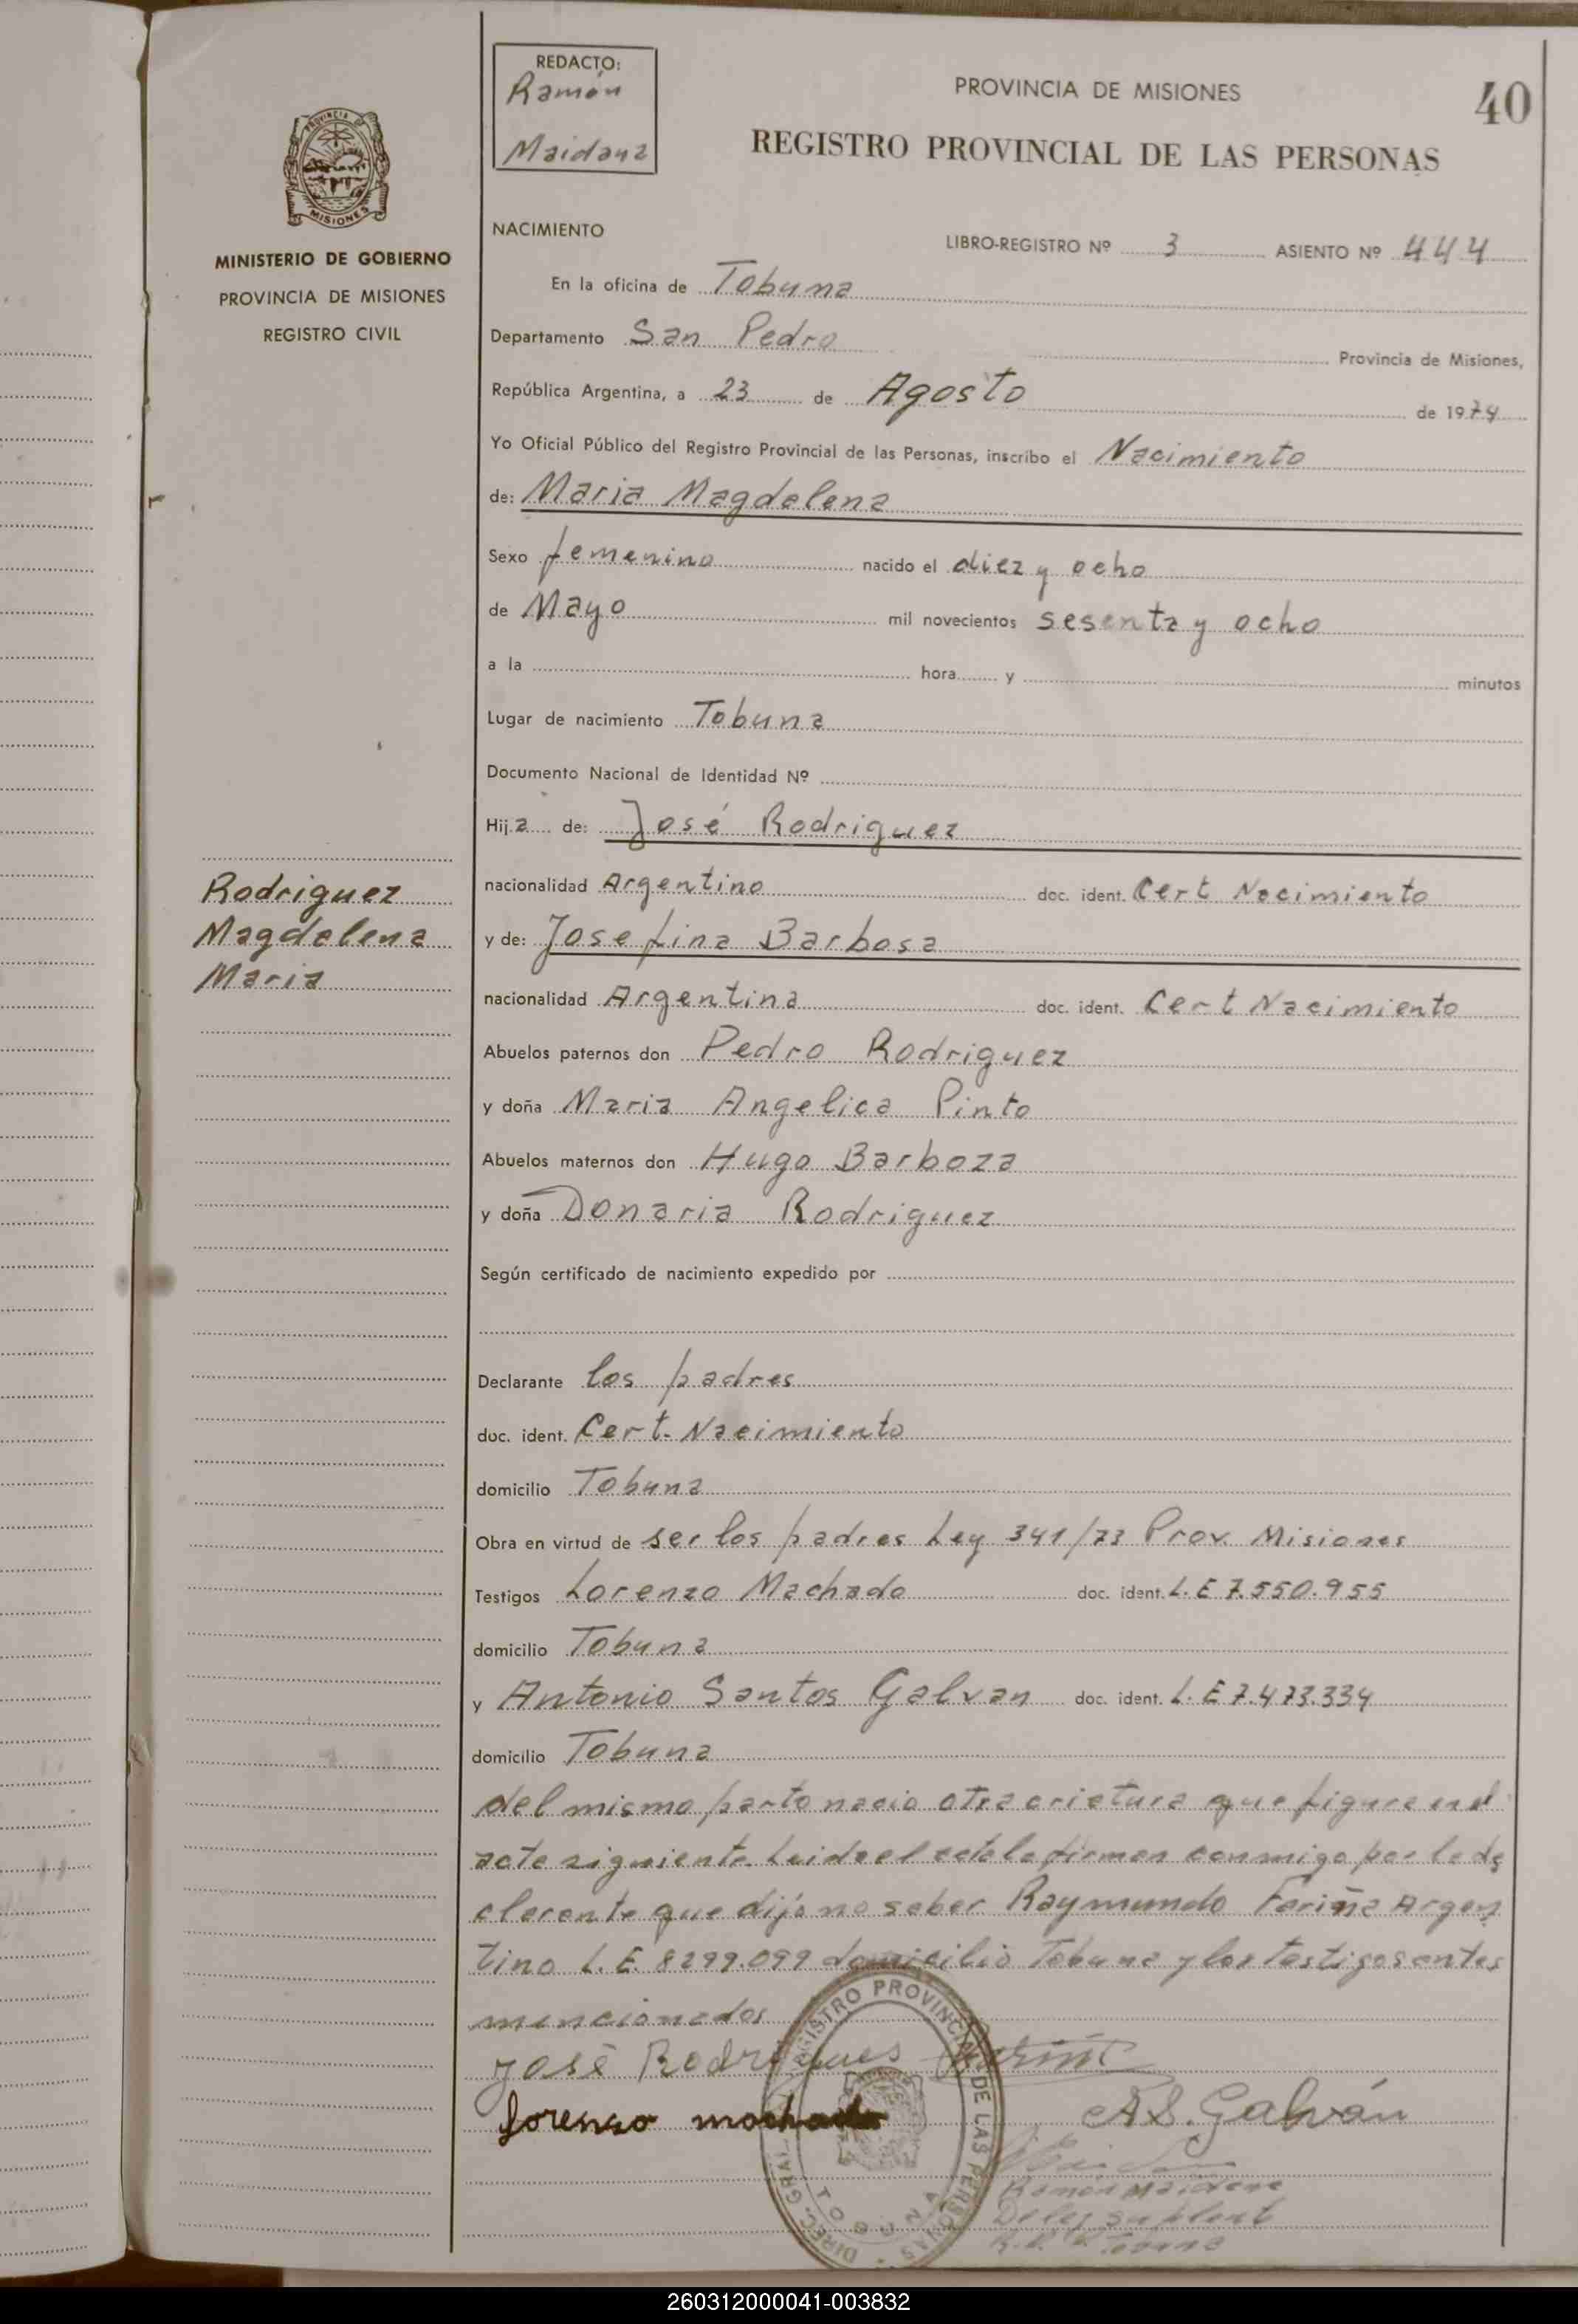 REDACTO:
Ramón
Maidana
PROVINCIA DE MISIONES
40
REGISTRO PROVINCIAL DE LAS PERSONAS
PROVINCIA DE
MISIONES
MINISTERIO DE GOBIERNO
PROVINCIA DE MISIONES
REGISTRO CIVIL
NACIMIENTO
LIBRO-REGISTRO Nº 3 ASIENTO Nº 444
En la oficina de Tobuna
Departamento San Pedro Provincia de Misiones,
República Argentina, a 23 de Agosto de 1974
Yo Oficial Público del Registro Provincial de las Personas, inscribo el Nacimiento
de: Maria Magdalena
Sexo femenino nacido el diez y ocho
de Mayo mil novecientos sesenta y ocho
a la hora y minutos
Lugar de nacimiento Tobuna
Documento Nacional de Identidad Nº
Hija de: José Rodriguez
Rodriguez
Magdalena
Maria
nacionalidad Argentino doc. ident. Cert Nacimiento
y de: Josefina Barbosa
nacionalidad Argentina doc. ident. Cert Nacimiento
Abuelos paternos don Pedro Rodriguez
y doña Maria Angelica Pinto
Abuelos maternos don Hugo Barboza
y doña Donaria Rodriguez
Según certificado de nacimiento expedido por
Declarante los padres
doc. ident. Cert. Nacimiento
domicilio Tobuna
Obra en virtud de ser los padres Ley 341/73 Prov. Misiones
Testigos Lorenzo Machado doc. ident. L.E 7.550.955
domicilio Tobuna
y Antonio Santos Galvan doc. ident. L.E 7.473.334
domicilio Tobuna
del mismo parto nacio otra criatura que figura en el
acta siguiente. Leida el acta la firman conmigo por la de
clarente que dijo no saber Raymundo Fariña Argen
tino L.E. 8299.099 domicilio Tobuna y los testigos antes
mencionados
José Rodrigues
Lorenso machado
A.S. Galván
Ramon Maidana
DIREC. GRAL. REGISTRO PROVINCIAL DE LAS PERSONAS
TOBUNA
260312000041-003832